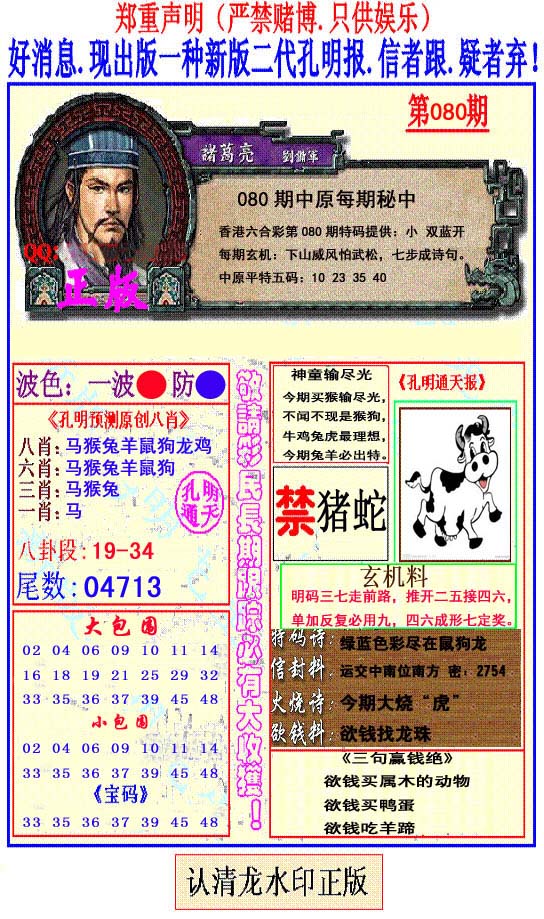 郑重声明（严禁赌博.只供娱乐）
好消息.现出版一种新版二代孔明报.信者跟.疑者弃！
第080期
諸葛亮 劉備軍
080 期中原每期秘中
香港六合彩第 080 期特码提供：小 双蓝开
每期玄机：下山威风怕武松，七步成诗句。
中原平特五码：10 23 35 40
QQ：
正版
波色：一波 防
《孔明预测原创八肖》
八肖：马猴兔羊鼠狗龙鸡
六肖：马猴兔羊鼠狗
三肖：马猴兔
一肖：马
孔明
通天
八卦段：19-34
尾数：04713
大包围
02 04 06 09 10 11 14
16 18 19 21 25 29 32
33 35 36 37 39 45 48
小包围
02 04 06 09 10 11 14
33 35 36 37 39 45 48
《宝码》
33 35 36 37 39 45 48
敬請彩民長期跟踪必有大收獲！
神童输尽光
今期买猴输尽光，
不闻不现是猴狗，
牛鸡兔虎最理想，
今期兔羊必出特。
《孔明通天报》
禁猪蛇
玄机料
明码三七走前路，推开二五接四六，
单加反复必用九，四六成形七定奖。
特码诗：绿蓝色彩尽在鼠狗龙
信封料：运交中南位南方 密：2754
火烧诗：今期大烧“虎”
欲钱料：欲钱找龙珠
《三句赢钱绝》
欲钱买属木的动物
欲钱买鸭蛋
欲钱吃羊蹄
认清龙水印正版